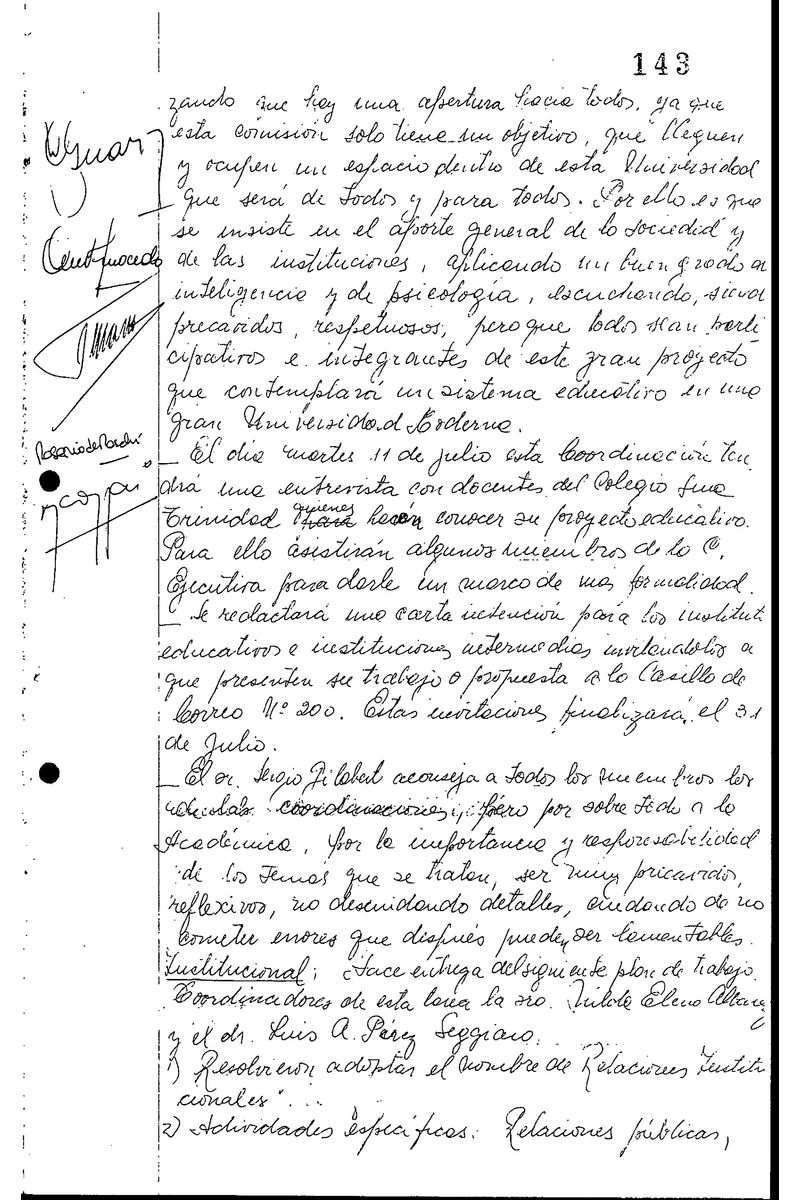 143
zando que hay una apertura hacia todos, ya que
esta comisión solo tiene un objetivo, que lleguen
y ocupen un espacio dentro de esta Universidad
que será de todos y para todos. Por ello es que
se insiste en el aporte general de la sociedad y
de las instituciones, aplicando un buen grado de
inteligencia y de psicología, escuchando, siendo
precavidos, respetuosos, pero que todos sean parti
cipativos e integrantes de este gran proyecto
que contemplará un sistema educativo en una
gran Universidad Moderna.
_ El día martes 11 de julio esta Coordinación ten
drá una entrevista con docentes del Colegio
Trinidad quienes harán conocer su proyecto educativo.
Para ello asistirán algunos miembros de la C.
Ejecutiva para darle un marco de más formalidad.
_ Se redactará una carta intención para los instituti
educativos e instituciones intermedias invitándolos a
que presenten su trabajo o propuesta a la Casilla de
Correo Nº 200. Estas invitaciones finalizará, el 31
de Julio.
_ El sr. Sergio Gilabert aconseja a todos los miembros
de las coordinaciones, pero por sobre todo a la
Académica, por la importancia y responsabilidad
de los temas que se tratan, ser muy precavidos,
reflexivos, no descuidando detalles, cuidando de no
cometer errores que después pueden ser lamentables.
Institucional: Hace entrega del siguiente plan de trabajo.
Coordinadores de esta área la sra. Elena
y el dr. Luis A. Pérez
1) Resolvieron adoptar el nombre de Relaciones Institu
cionales".
2) Actividades específicas: Relaciones públicas,